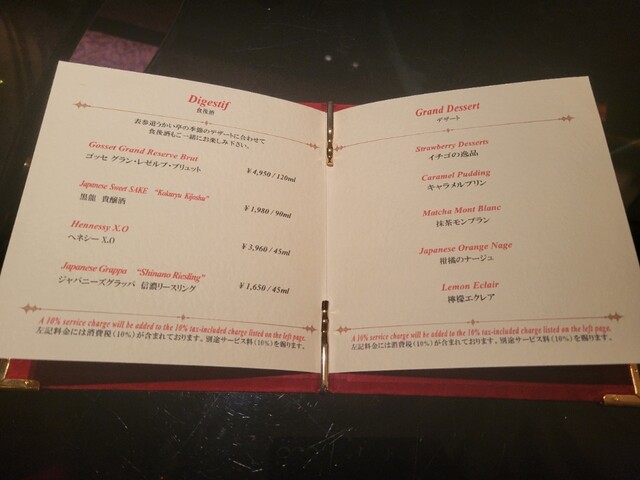 Digestif
食後酒
表参道うかい亭の季節のデザートに合わせて
食後酒もご一緒にお楽しみ下さい。
Gosset Grand Reserve Brut
ゴッセ グラン・レゼルブ・ブリュット
¥4,950/120ml
Japanese Sweet SAKE "Kokuryu Kijoshu"
黒龍 貴醸酒
¥1,980/90ml
Hennessy X.O
ヘネシー X.O
¥3,960/45ml
Japanese Grappa "Shinano Riesling"
ジャパニーズグラッパ 信濃リースリング
¥1,650/45ml
A 10% service charge will be added to the 10% tax-included charge listed on the left page.
左記料金には消費税(10%)が含まれております。別途サービス料(10%)を賜ります。
Grand Dessert
デザート
Strawberry Desserts
イチゴの逸品
Caramel Pudding
キャラメルプリン
Matcha Mont Blanc
抹茶モンブラン
Japanese Orange Nage
柑橘のナージュ
Lemon Eclair
檸檬エクレア
A 10% service charge will be added to the 10% tax-included charge listed on the left page.
左記料金には消費税(10%)が含まれております。別途サービス料(10%)を賜ります。